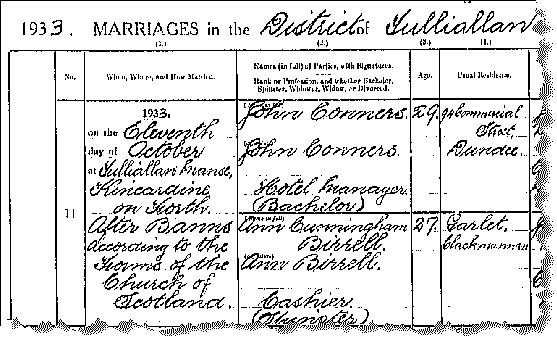 1933. MARRIAGES in the District of Tulliallan
(1.) (2.) (3.) (4.)
No. When, Where, and How Married. Names (in full) of Parties, with Signatures. Age. Usual Residence.
Rank or Profession, and whether Bachelor, Spinster, Widower, Widow, or Divorced.
11
1933.
on the Eleventh
day of October
at Tulliallan Manse,
Kincardine
on Forth
After Banns
according to the
Forms of the
Church of
Scotland.
John Conners
John Conners
Hotel Manager
(Bachelor)
29.
Commercial
Street,
Dundee
Ann Cunningham
Birrell.
Ann Birrell.
Cashier
(Spinster)
27.
Garlet.
Clackmannan